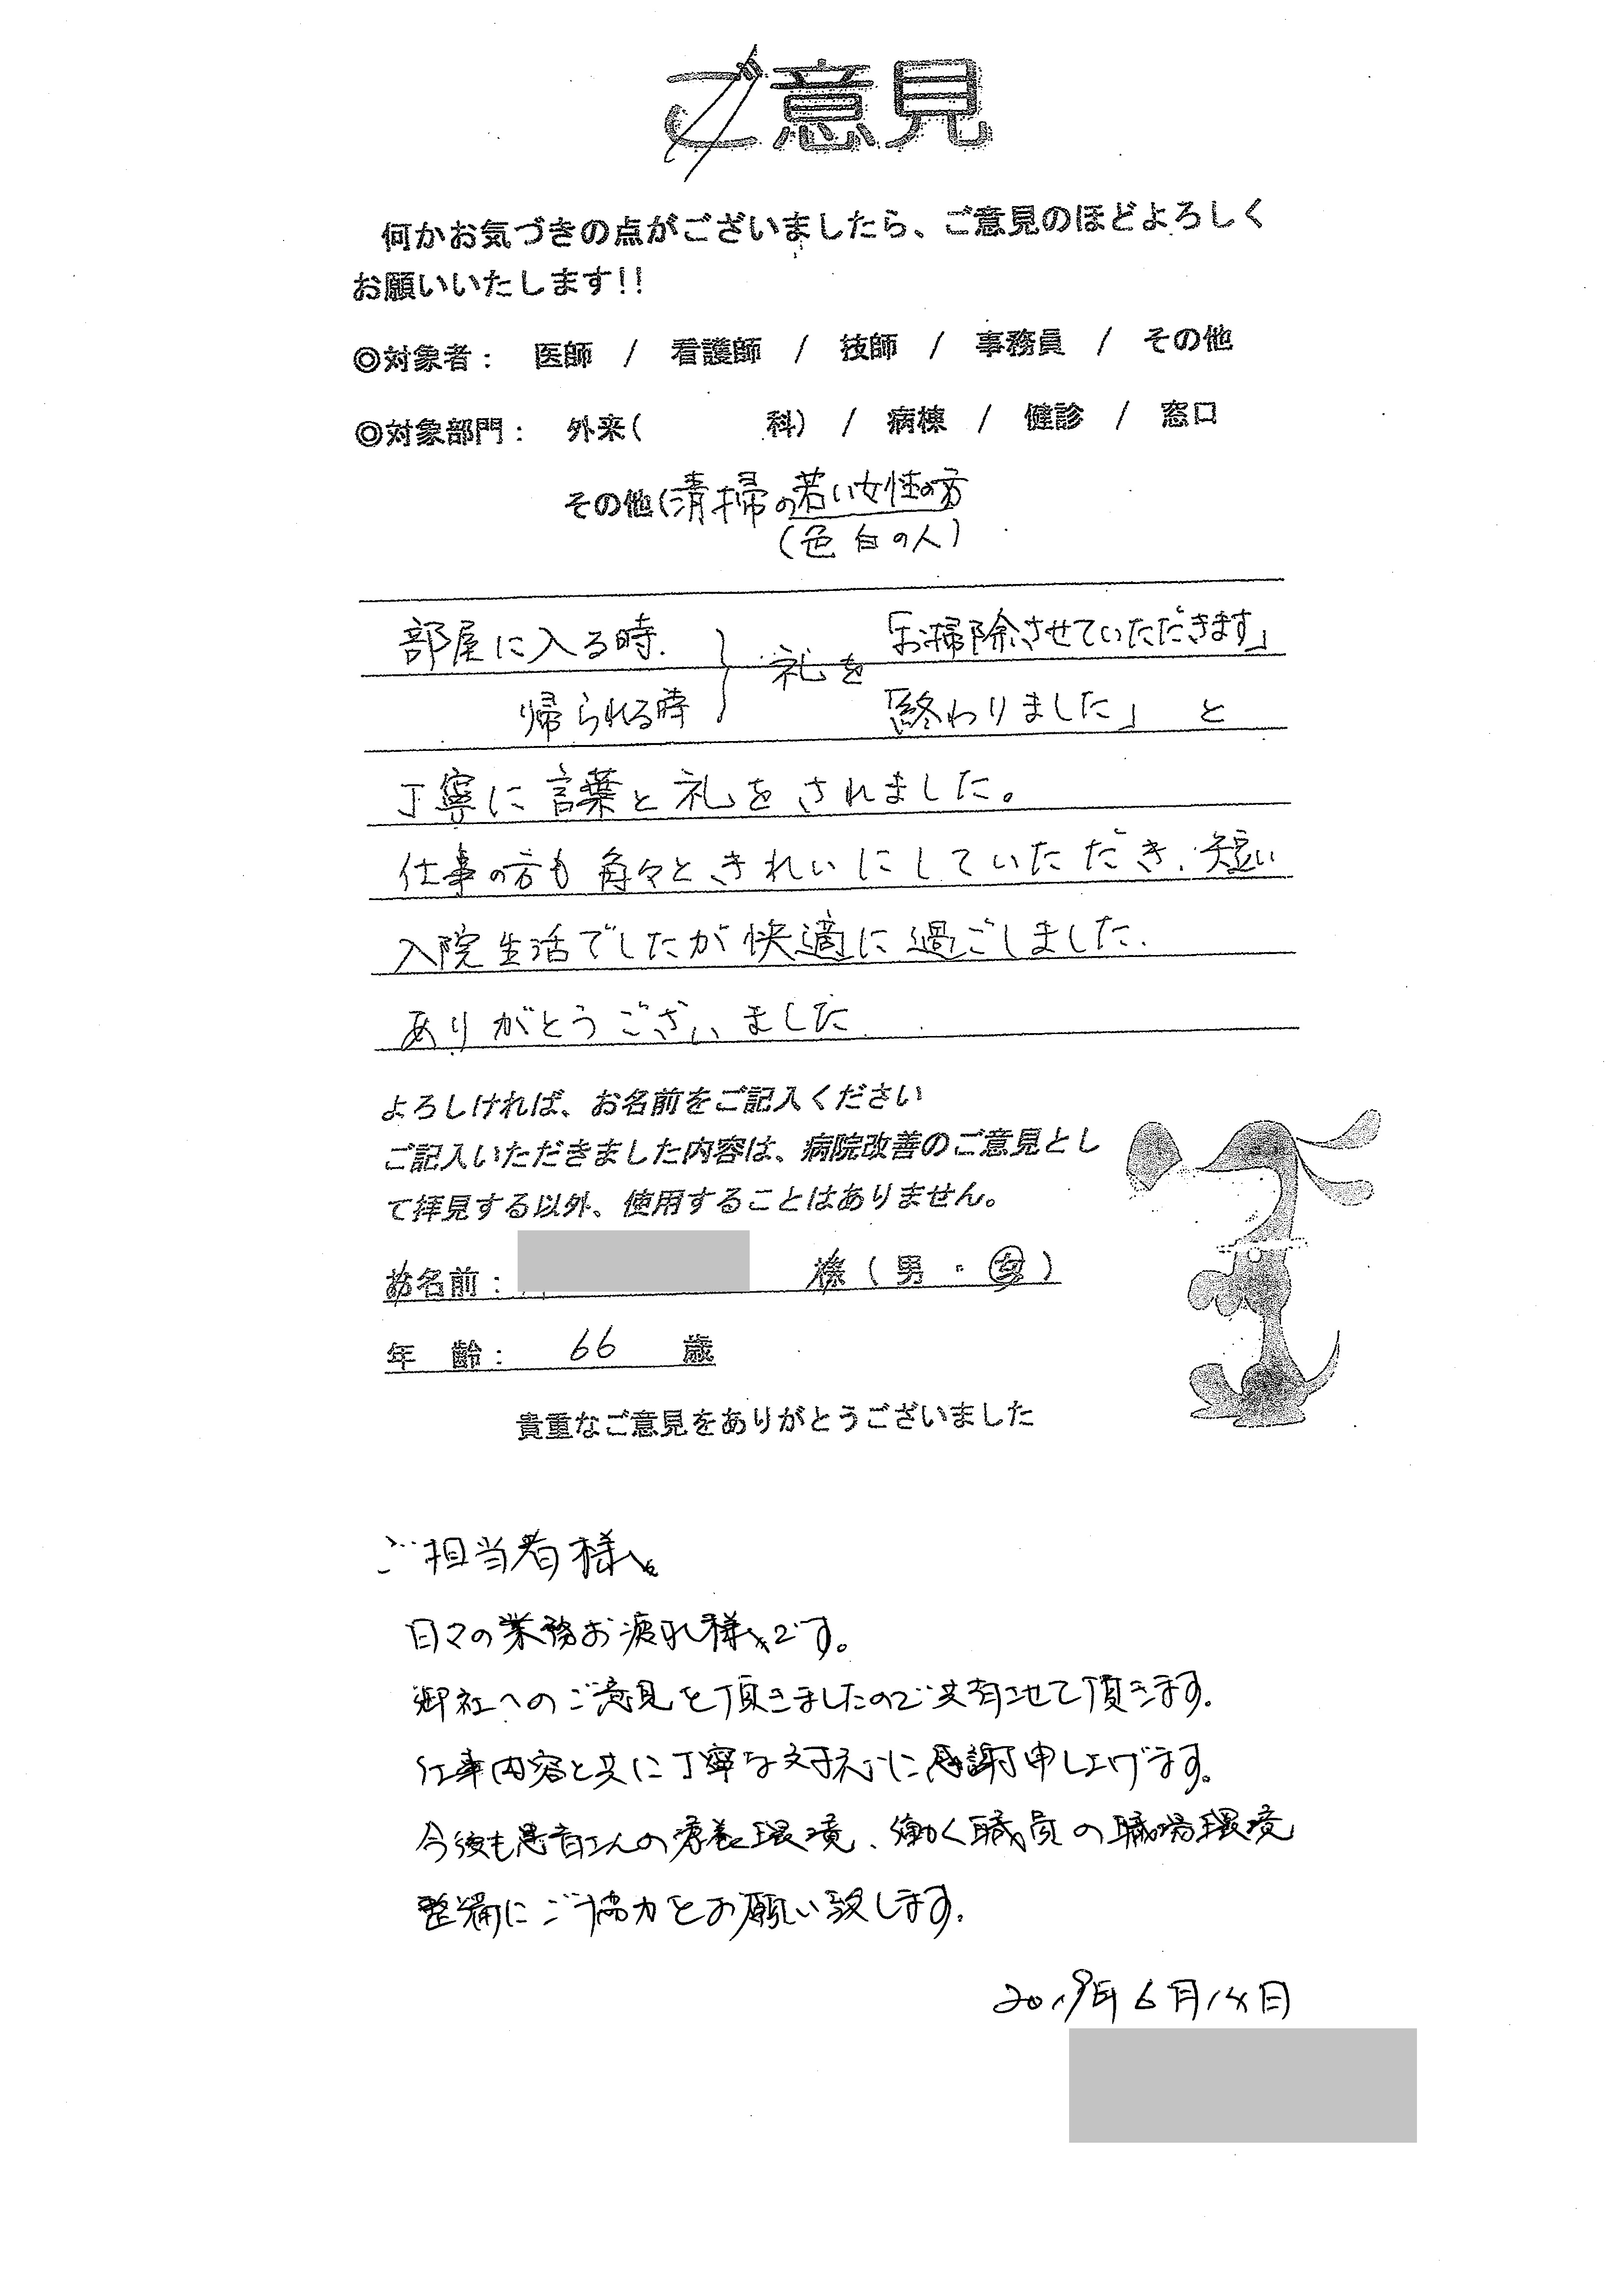 ご意見
何かお気づきの点がございましたら、ご意見のほどよろしく
お願いいたします!!
◎対象者： 医師 / 看護師 / 技師 / 事務員 / その他
◎対象部門： 外来( 科) / 病棟 / 健診 / 窓口
その他(清掃の若い女性の方
(色白の人)
部屋に入る時. 「お掃除させていただきます」
礼を
帰られる時 「終わりました」 と
丁寧に言葉と礼をされました。
仕事の方も角々ときれいにしていただき、短い
入院生活でしたが快適に過ごしました.
ありがとうございました.
よろしければ、お名前をご記入ください
ご記入いただきました内容は、病院改善のご意見とし
て拝見する以外、使用することはありません。
お名前： 様（男・女）
年 齢： 66 歳
貴重なご意見をありがとうございました
ご担当者様へ
日々の業務お疲れ様です。
御社へのご意見を頂きましたので共有させて頂きます。
仕事内容と共に丁寧な対応に感謝申し上げます。
今後も患者さんの療養環境、働く職員の職場環境
整備にご協力をお願い致します。
2019年6月14日